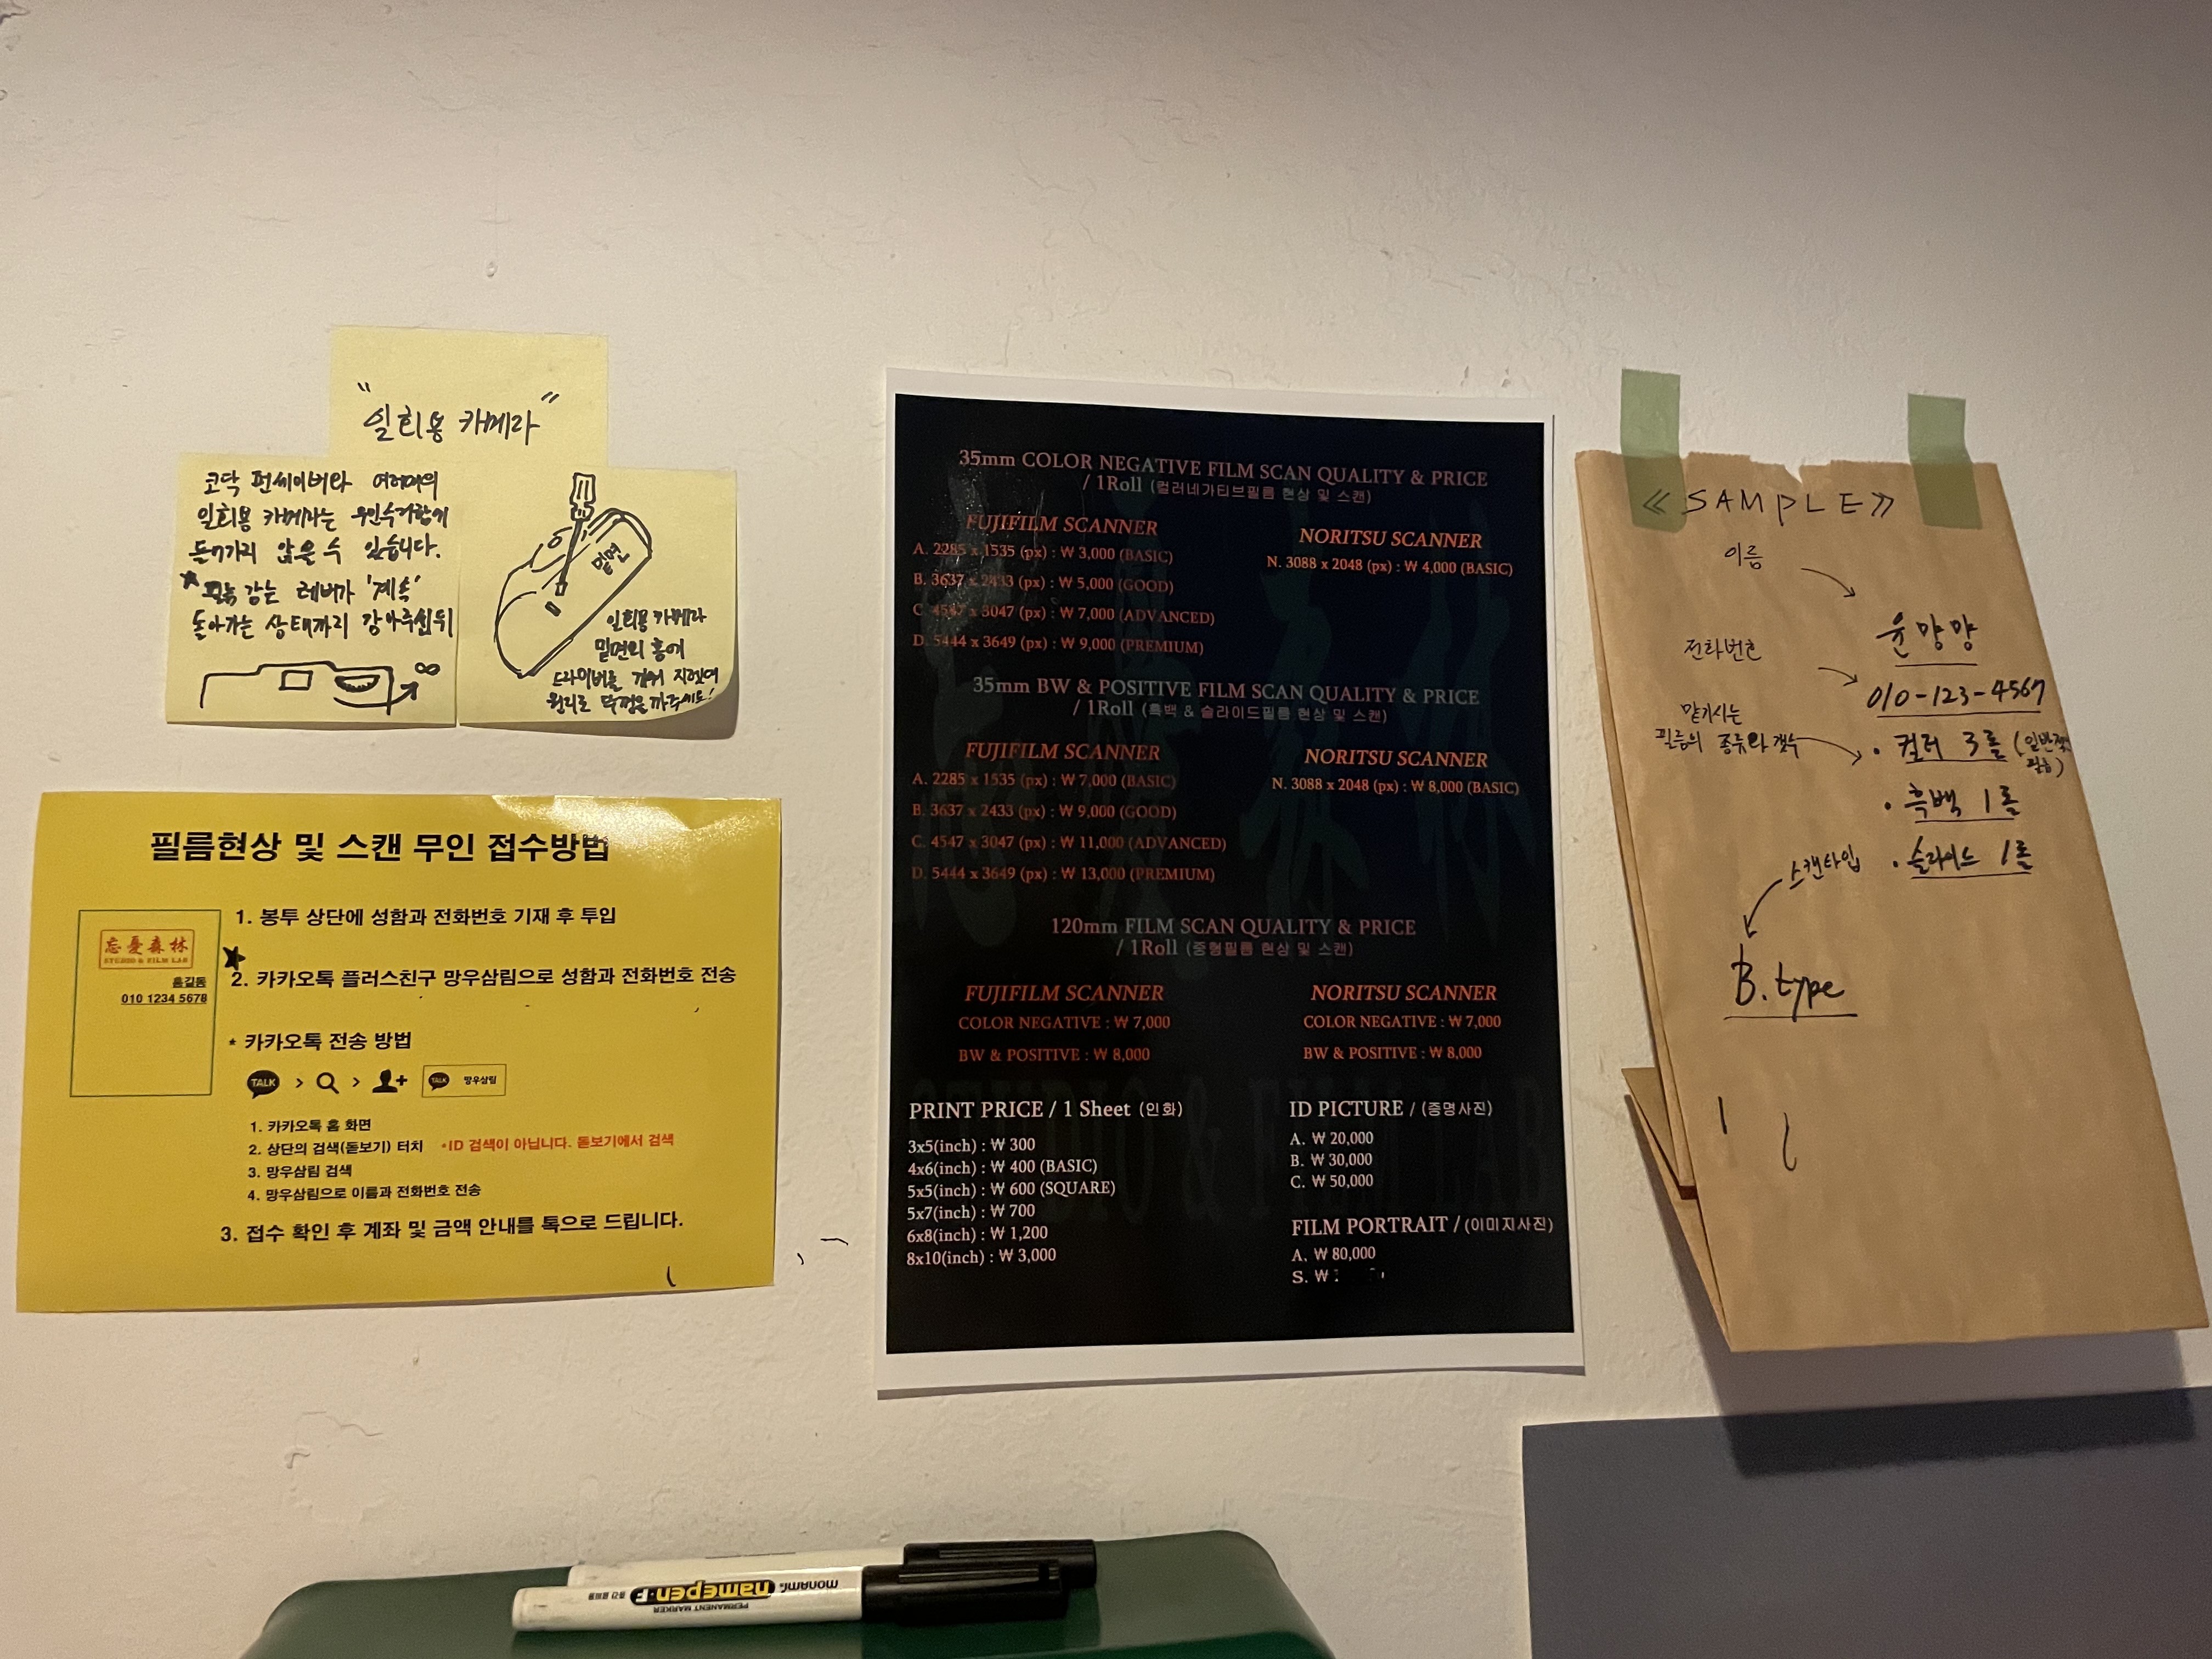 "일회용 카메라"
코닥 펀세이버와 여러미의
일회용 카메라는 무인수거함에
들어가지 않을 수 있습니다.
★ 필름 감는 레버가 '계속'
돌아가는 상태까지 감아주신 뒤
∞
밑면
일회용 카메라
밑면의 홈에
드라이버를 끼워 지렛대
원리로 뚜껑을 까주세요!
필름현상 및 스캔 무인 접수방법
忘憂森林
STUDIO & FILM LAB
홍길동
010 1234 5678
1. 봉투 상단에 성함과 전화번호 기재 후 투입
★
2. 카카오톡 플러스친구 망우삼림으로 성함과 전화번호 전송
* 카카오톡 전송 방법
TALK > > TALK 망우삼림
1. 카카오톡 홈 화면
2. 상단의 검색(돋보기) 터치 *ID 검색이 아닙니다. 돋보기에서 검색
3. 망우삼림 검색
4. 망우삼림으로 이름과 전화번호 전송
3. 접수 확인 후 계좌 및 금액 안내를 톡으로 드립니다.
35mm COLOR NEGATIVE FILM SCAN QUALITY & PRICE
/ 1Roll (컬러네가티브필름 현상 및 스캔)
FUJIFILM SCANNER
A. 2285 x 1535 (px) : ₩ 3,000 (BASIC)
B. 3637 x 2433 (px) : ₩ 5,000 (GOOD)
C. 4547 x 3047 (px) : ₩ 7,000 (ADVANCED)
D. 5444 x 3649 (px) : ₩ 9,000 (PREMIUM)
NORITSU SCANNER
N. 3088 x 2048 (px) : ₩ 4,000 (BASIC)
35mm BW & POSITIVE FILM SCAN QUALITY & PRICE
/ 1Roll (흑백 & 슬라이드필름 현상 및 스캔)
FUJIFILM SCANNER
A. 2285 x 1535 (px) : ₩ 7,000 (BASIC)
B. 3637 x 2433 (px) : ₩ 9,000 (GOOD)
C. 4547 x 3047 (px) : ₩ 11,000 (ADVANCED)
D. 5444 x 3649 (px) : ₩ 13,000 (PREMIUM)
NORITSU SCANNER
N. 3088 x 2048 (px) : ₩ 8,000 (BASIC)
120mm FILM SCAN QUALITY & PRICE
/ 1Roll (중형필름 현상 및 스캔)
FUJIFILM SCANNER
COLOR NEGATIVE : ₩ 7,000
BW & POSITIVE : ₩ 8,000
NORITSU SCANNER
COLOR NEGATIVE : ₩ 7,000
BW & POSITIVE : ₩ 8,000
PRINT PRICE / 1 Sheet (인화)
3x5(inch) : ₩ 300
4x6(inch) : ₩ 400 (BASIC)
5x5(inch) : ₩ 600 (SQUARE)
5x7(inch) : ₩ 700
6x8(inch) : ₩ 1,200
8x10(inch) : ₩ 3,000
ID PICTURE / (증명사진)
A. ₩ 20,000
B. ₩ 30,000
C. ₩ 50,000
FILM PORTRAIT / (이미지사진)
A. ₩ 80,000
S. ₩
STUDIO & FILM LAB
≪SAMPLE≫
이름
윤망망
전화번호
010-123-4567
맡기시는
필름의 종류와 갯수
· 컬러 3롤 (일반적인 필름)
· 흑백 1롤
· 슬라이드 1롤
스캔타입
B. type
monami namepen F
PERMANENT MARKER